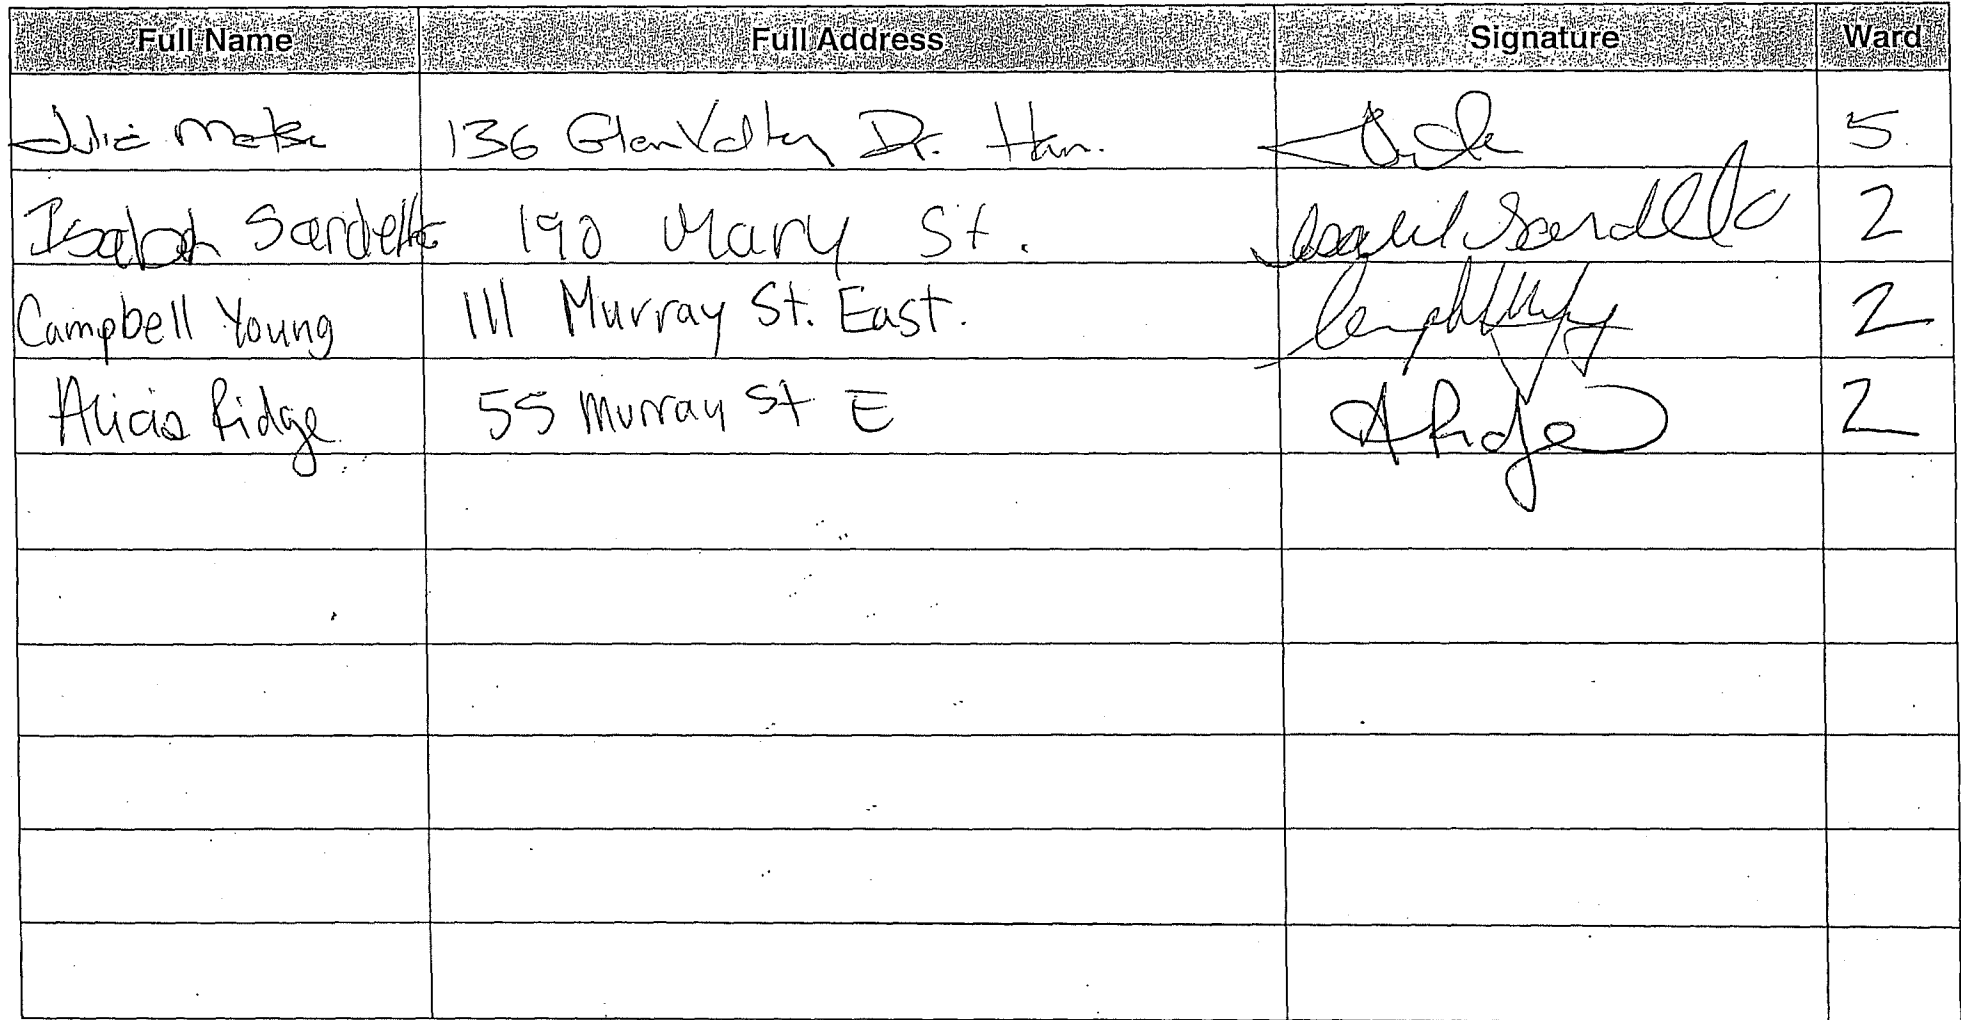 Full Name Full Address Signature Ward
Julie 136 Glen Valley Dr. Ham. 5
Sardella 190 Mary St. 2
Campbell Young 111 Murray St. East. 2
Alicia Ridge 55 Murray St E A Ridge 2